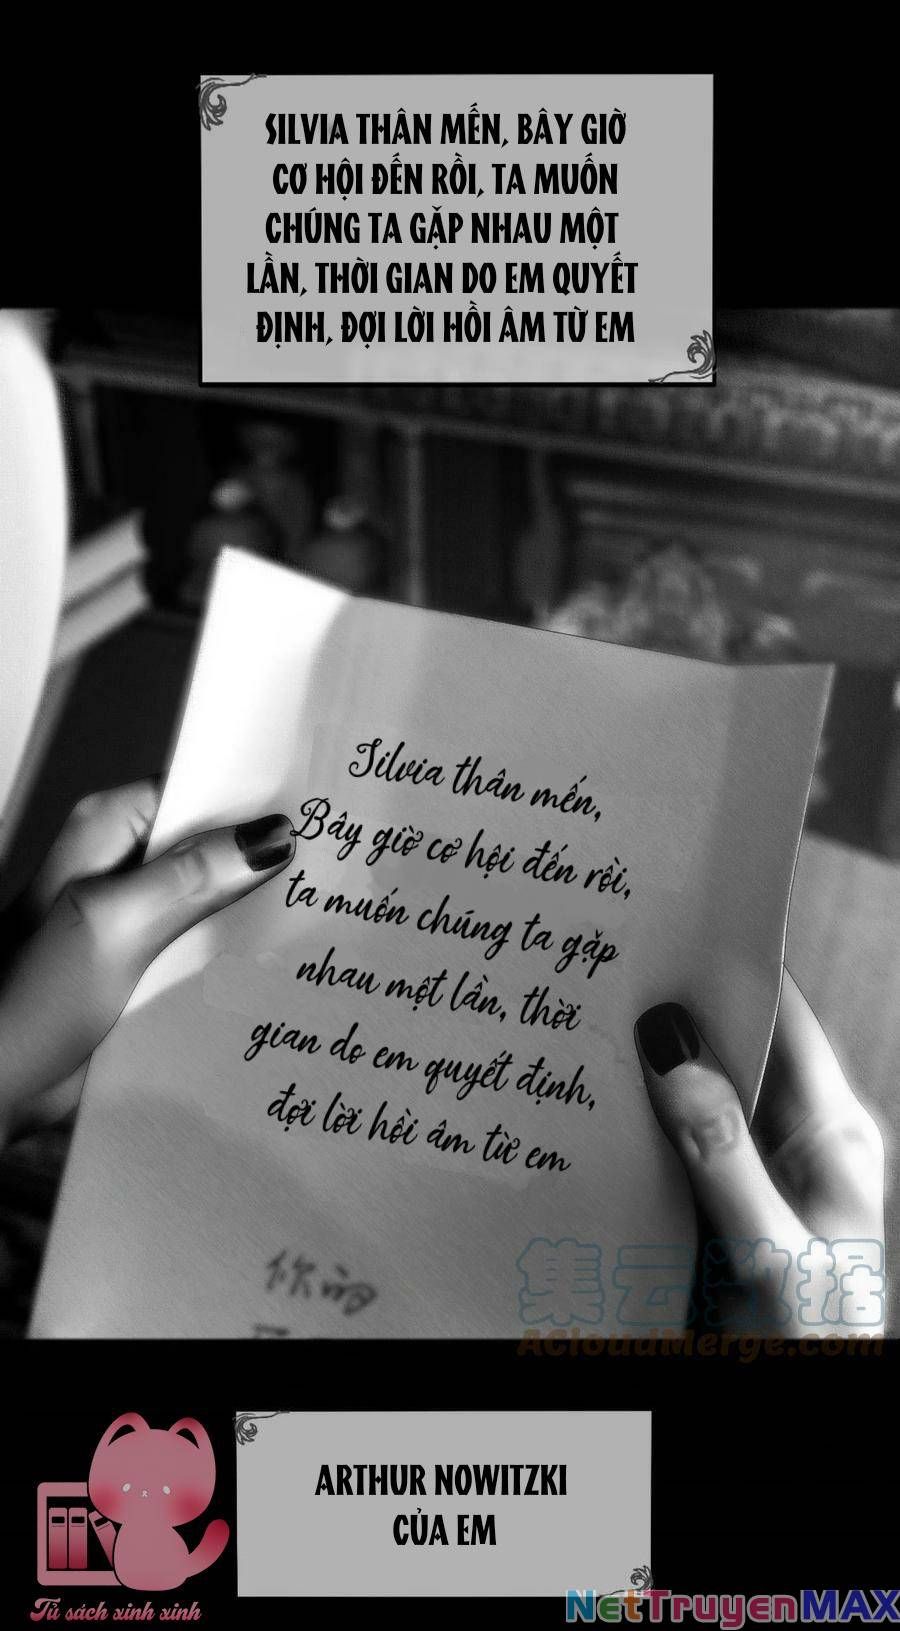 SILVIA THÂN MẾN, BÂY GIỜ
CƠ HỘI ĐẾN RỒI, TA MUỐN
CHÚNG TA GẶP NHAU MỘT
LẦN, THỜI GIAN DO EM QUYẾT
ĐỊNH, ĐỢI LỜI HỒI ÂM TỪ EM
Silvia thân mến,
Bây giờ cơ hội đến rồi,
ta muốn chúng ta gặp
nhau một lần, thời
gian do em quyết định,
đợi lời hồi âm từ em
你的
集云数据
ACloudMerge.com
ARTHUR NOWITZKI
CỦA EM
Tủ sách xinh xinh
NETTRUYENMAX